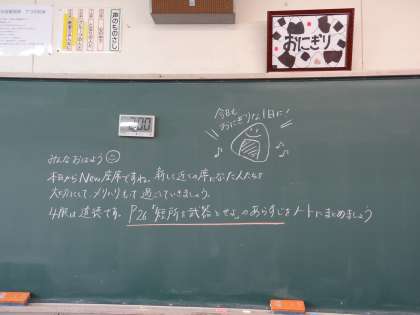 声のものさし
おにぎり
今日も
おにぎりな1日に!
みんなおはよう
本日からNew座席ですね。新しく近くの席になった人たちを
大切にして、メリハリもって過ごしていきましょう。
4限は道徳です。P26「短所を武器とせよ」のあらすじをノートにまとめましょう